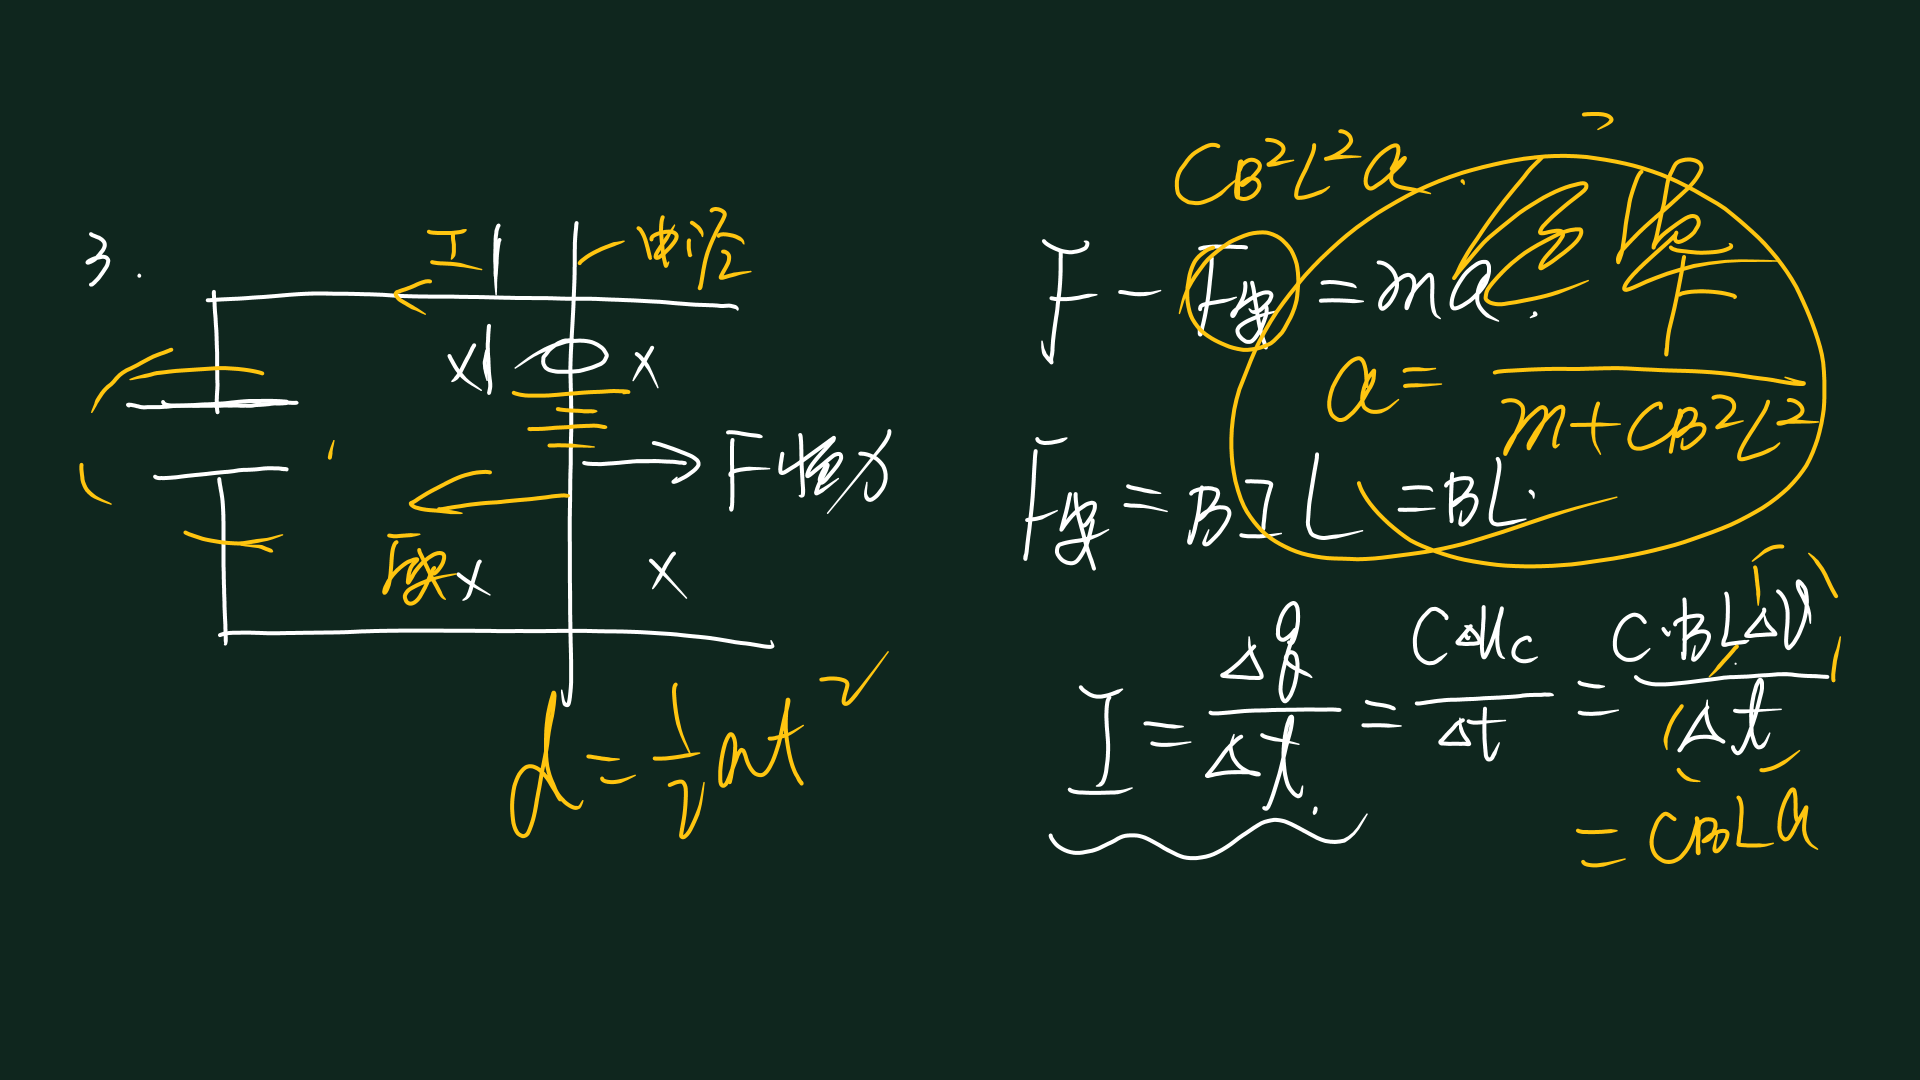 3.
I
x x
F恒力
F安 x x
d = 1/2 at²
CB²L²a
F - F安 = ma.
a = F/(m+CB²L²)
F安 = BIL = BL.
I = Δq/Δt = CΔUc/Δt = C·BLΔV/Δt
= CBLa